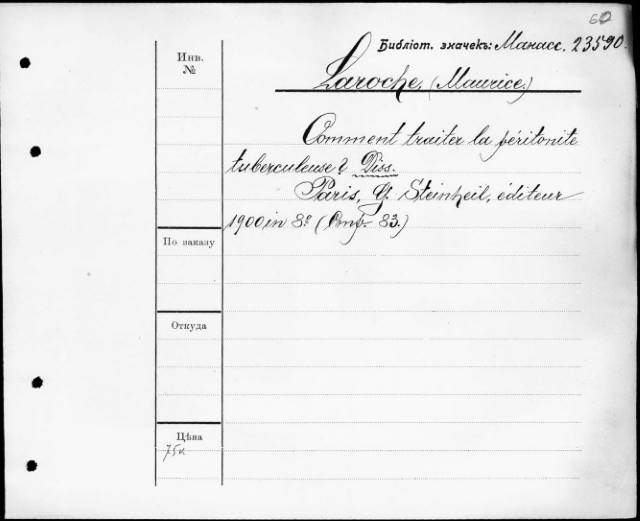 60
Библіот. значекъ: Манасс. 23590.
Инв.
№
Laroche, (Maurice.)
Comment traiter la péritonite
tuberculeuse? Diss.
Paris, G. Steinheil, éditeur
1900 in 8º ( 83.)
По заказу
Откуда
Цѣна
75к